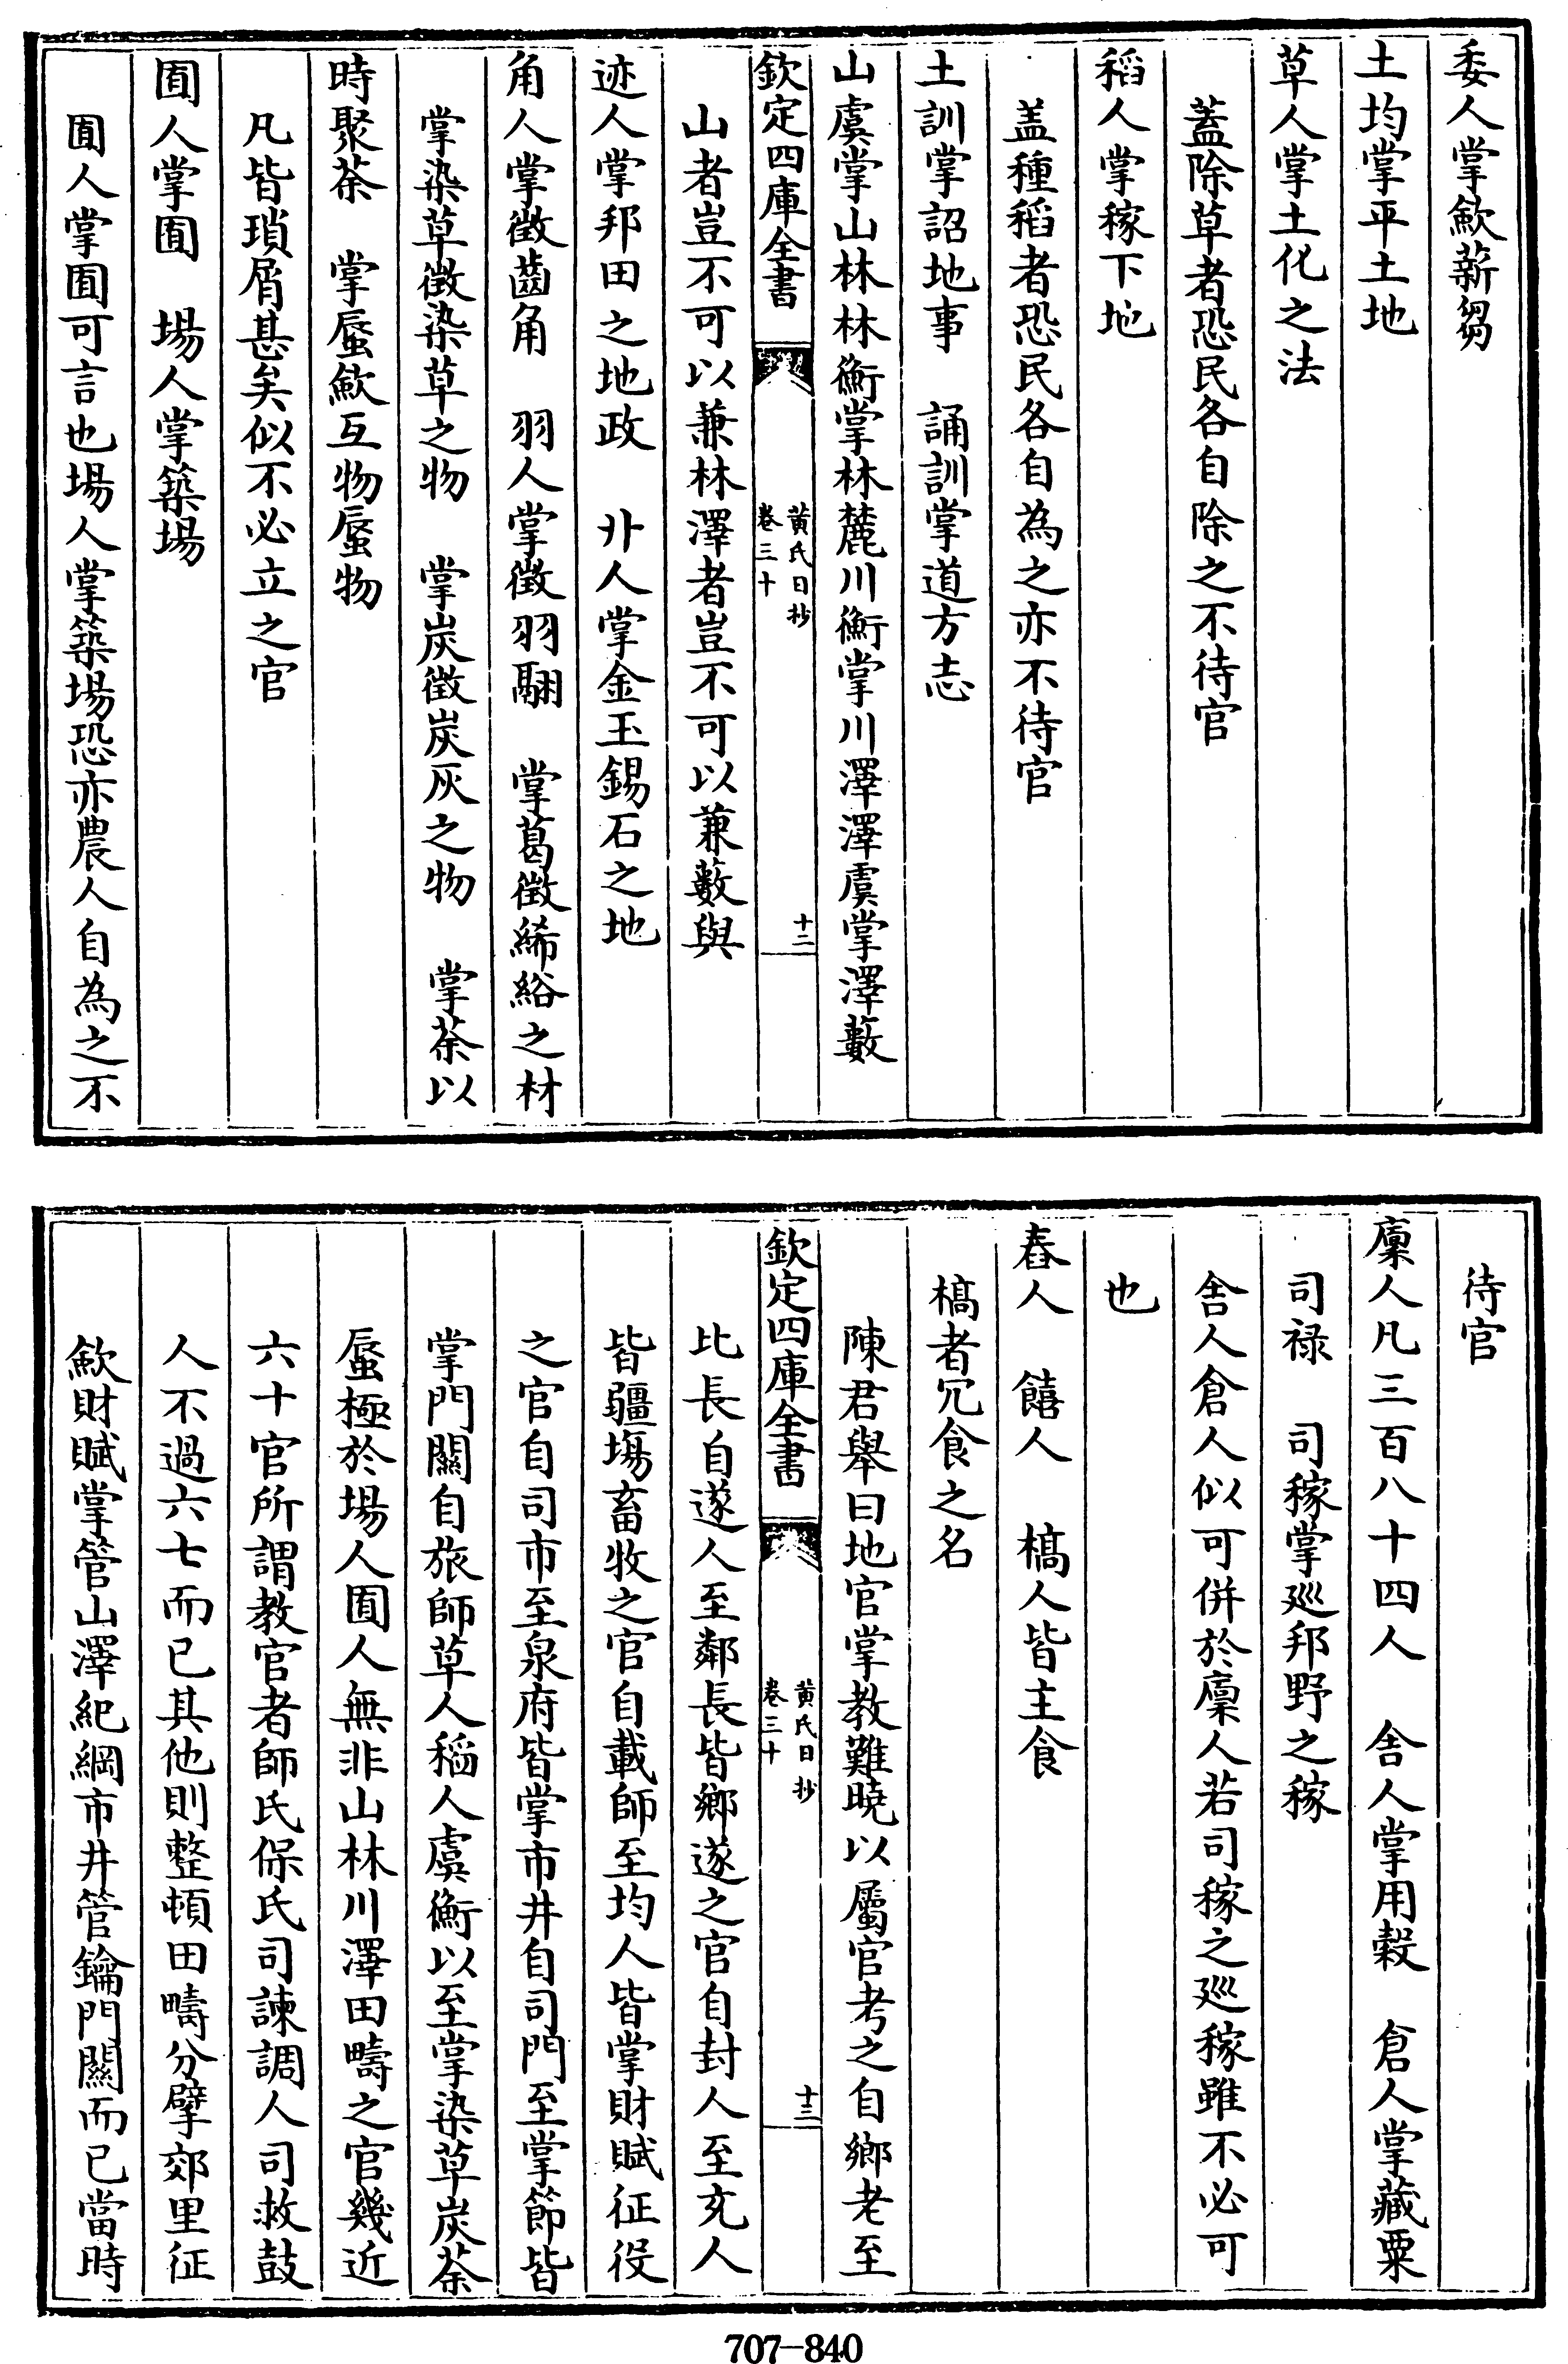 委人掌斂薪芻
土均掌平土地
草人掌土化之法
蓋除草者恐民各自除之不待官
稻人掌稼下地
盖種稻者恐民各自為之亦不待官
土訓掌詔地事　誦訓掌道方志
山虞掌山林林衡掌林麓川衡掌川澤澤虞掌澤藪
欽定四庫全書
黄氏日抄
卷三十
十二
山者豈不可以兼林澤者豈不可以兼藪與
迹人掌邦田之地政　丱人掌金玉錫石之地
角人掌徴齒角　羽人掌徴羽翮　掌葛徴絺綌之材
掌染草徴染草之物　掌炭徴炭灰之物　掌荼以
時聚荼　掌蜃斂互物蜃物
凡皆瑣屑甚矣似不必立之官
囿人掌囿　場人掌築場
囿人掌囿可言也場人掌築場恐亦農人自為之不
待官
廩人凡三百八十四人　舎人掌用榖　倉人掌藏粟
司禄　司稼掌廵邦野之稼
舎人倉人似可併於廩人若司稼之廵稼雖不必可
也
舂人　饎人　槁人皆主食
槁者冗食之名
陳君舉曰地官掌教難曉以屬官考之自鄉老至
欽定四庫全書
黄氏日抄
卷三十
十三
比長自遂人至鄰長皆鄉遂之官自封人至充人
皆疆場畜牧之官自載師至均人皆掌財賦征役
之官自司市至泉府皆掌市井自司門至掌節皆
掌門關自旅師草人稻人虞衡以至掌染草炭荼
蜃極於場人囿人無非山林川澤田疇之官幾近
六十官所謂教官者師氏保氏司諫調人司救鼓
人不過六七而已其他則整頓田疇分擘郊里征
斂財賦掌管山澤紀綱市井管鑰門關而已當時
707-840